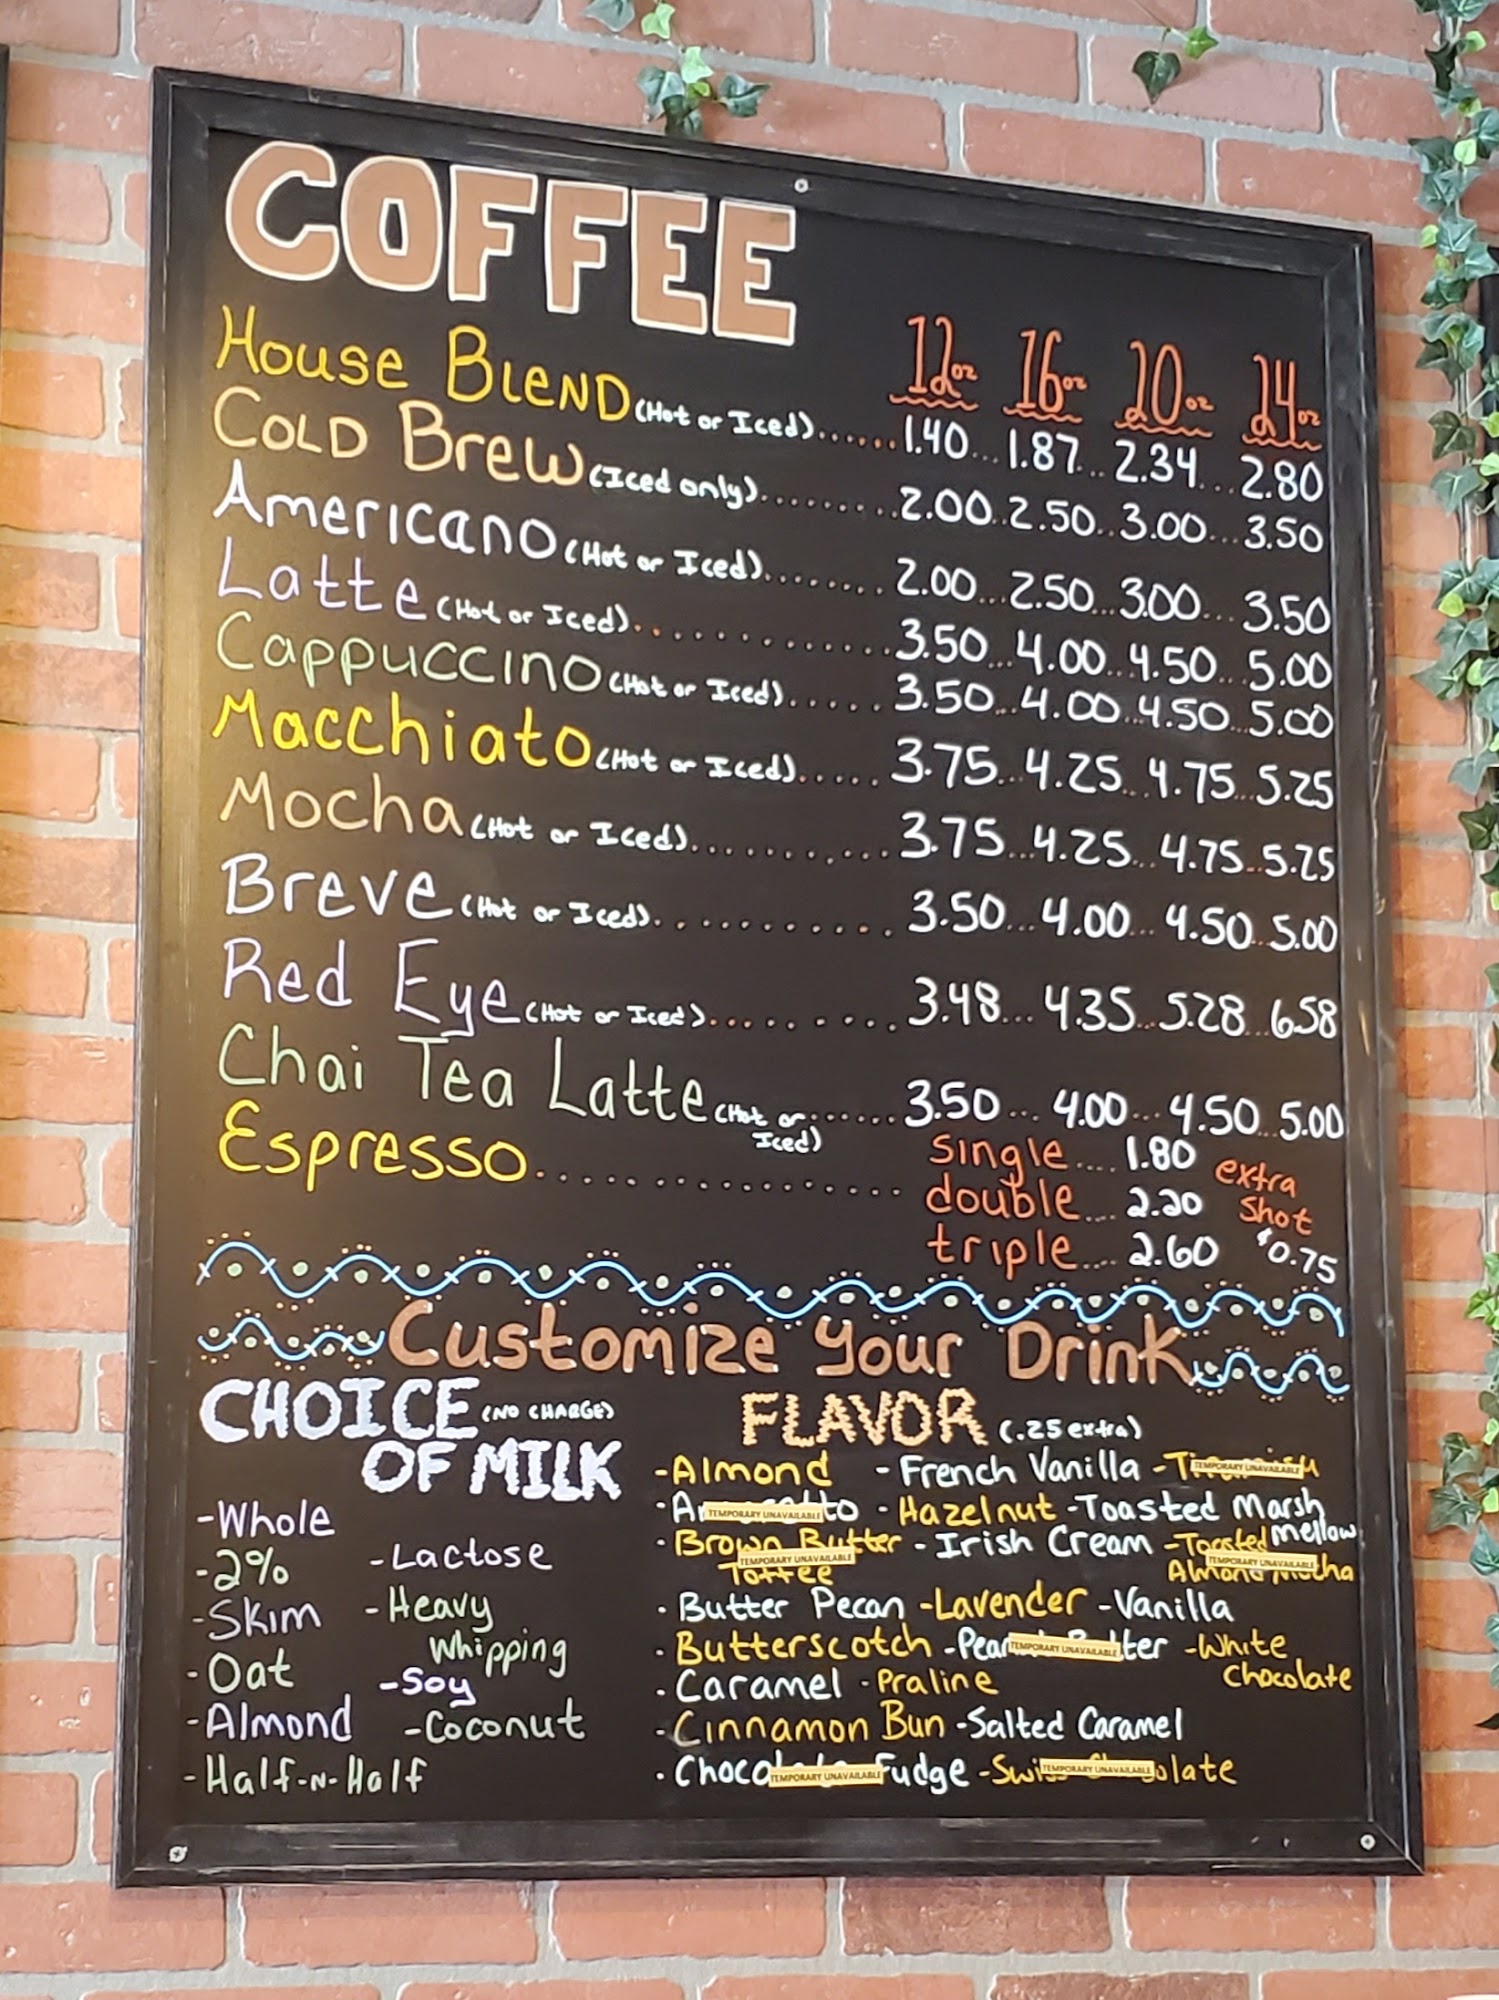 COFFEE
12oz 16oz 20oz 24oz
House Blend (Hot or Iced)......1.40...1.87...2.34...2.80
Cold Brew (Iced only).........2.00..2.50..3.00...3.50
Americano (Hot or Iced)........2.00...2.50...3.00...3.50
Latte (Hot or Iced).............3.50...4.00...4.50...5.00
Cappuccino (Hot or Iced).....3.50...4.00...4.50...5.00
Macchiato (Hot or Iced).....3.75...4.25...4.75...5.25
Mocha (Hot or Iced)...........3.75...4.25...4.75...5.25
Breve (Hot or Iced)...........3.50...4.00...4.50...5.00
Red Eye (Hot or Iced)..........3.48...4.35...5.28...6.58
Chai Tea Latte (Hot or Iced)......3.50...4.00...4.50...5.00
Espresso.................single....1.80
double....2.20
triple....2.60
extra
shot
$0.75
Customize Your Drink
CHOICE (NO CHARGE)
OF MILK
-Whole
-2% -Lactose
-Skim -Heavy
Whipping
-Oat -Soy
-Almond -Coconut
-Half-N-Half
FLAVOR (.25 extra)
-Almond -French Vanilla - TEMPORARY UNAVAILABLE
TEMPORARY UNAVAILABLE -Hazelnut -Toasted Marsh
mellow
-Brown Butter -Irish Cream -Toasted
TEMPORARY UNAVAILABLE TEMPORARY UNAVAILABLE
Toffee Almond Mocha
-Butter Pecan -Lavender -Vanilla
-Butterscotch -Peanut Butter -White
TEMPORARY UNAVAILABLE Chocolate
-Caramel -Praline
-Cinnamon Bun -Salted Caramel
-Chocolate Fudge -Swiss Chocolate
TEMPORARY UNAVAILABLE TEMPORARY UNAVAILABLE